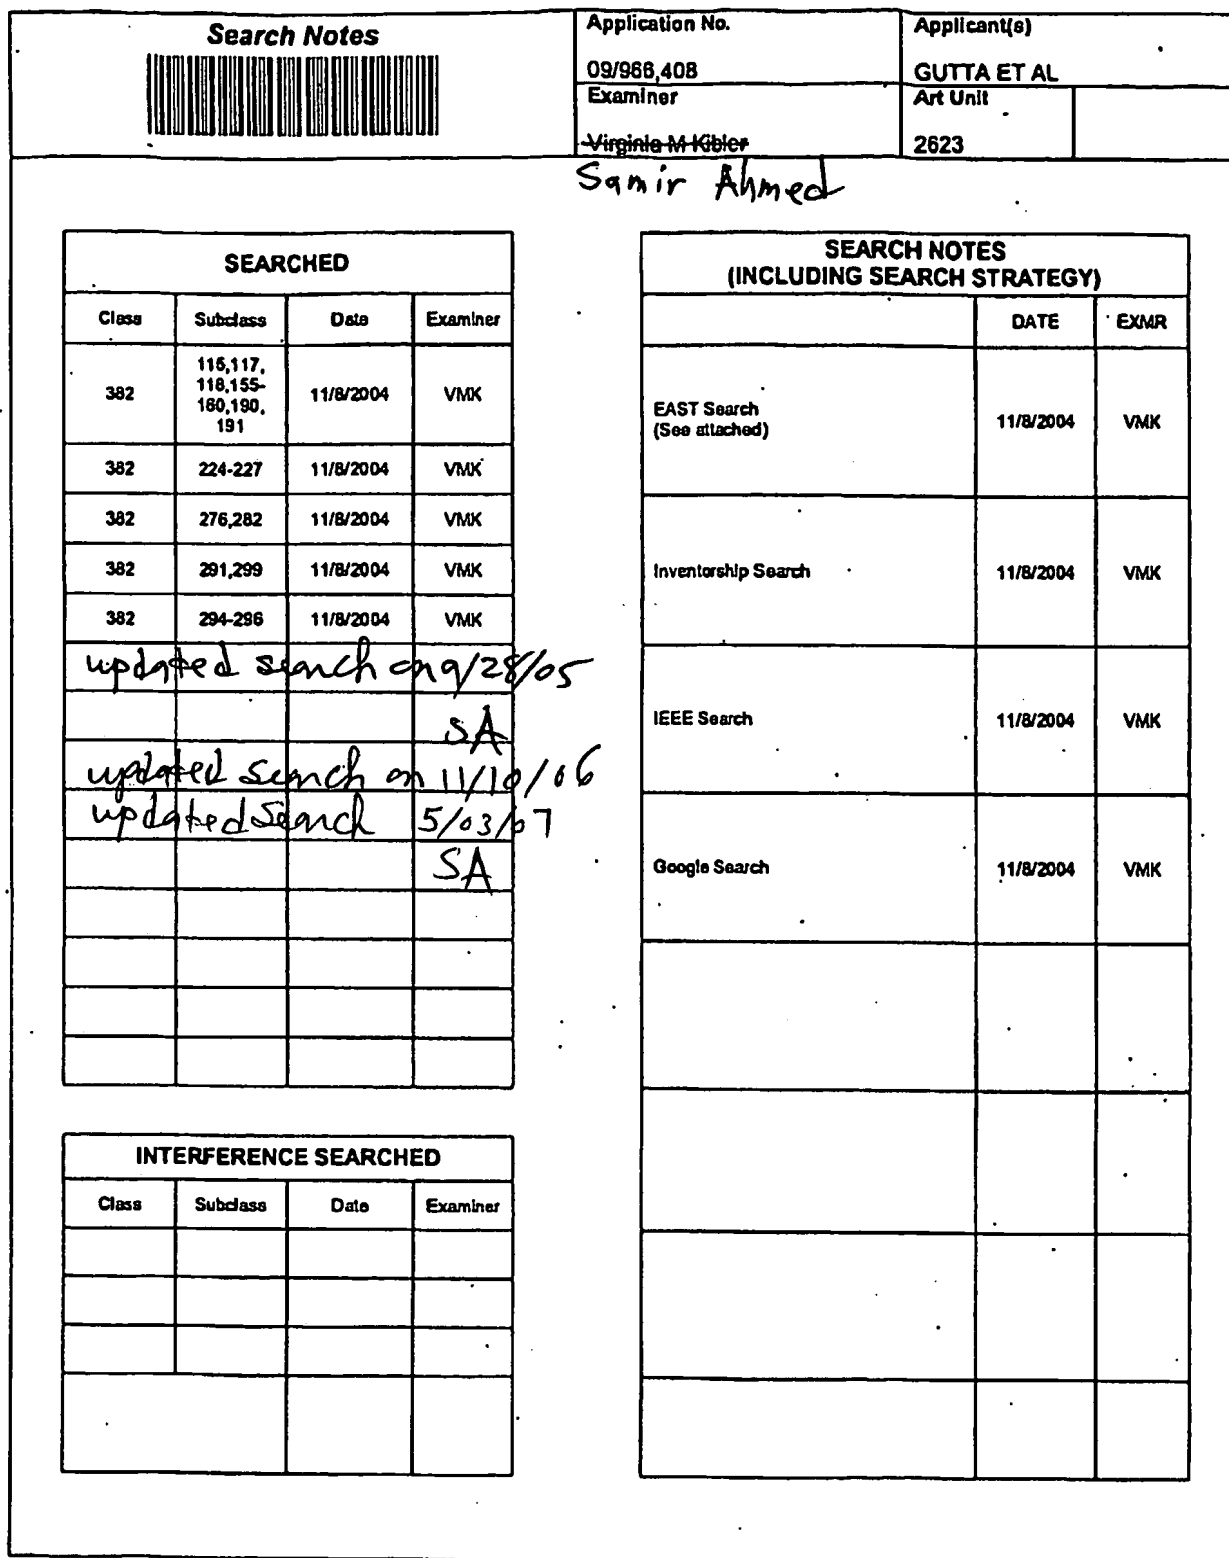 Search Notes
Application No.
09/966,408
Applicant(s)
GUTTA ET AL
Examiner
Virginia M Kibler
Art Unit
2623
Samir Ahmed
SEARCHED
Class Subclass Date Examiner
382 115,117, 118,155- 160,190, 191 11/8/2004 VMK
382 224-227 11/8/2004 VMK
382 276,282 11/8/2004 VMK
382 291,299 11/8/2004 VMK
382 294-296 11/8/2004 VMK
updated search on 9/28/05
SA
updated search on 11/10/06
updated Search 5/03/07
SA
INTERFERENCE SEARCHED
Class Subclass Date Examiner
SEARCH NOTES
(INCLUDING SEARCH STRATEGY)
DATE EXMR
EAST Search
(See attached) 11/8/2004 VMK
Inventorship Search 11/8/2004 VMK
IEEE Search 11/8/2004 VMK
Google Search 11/8/2004 VMK